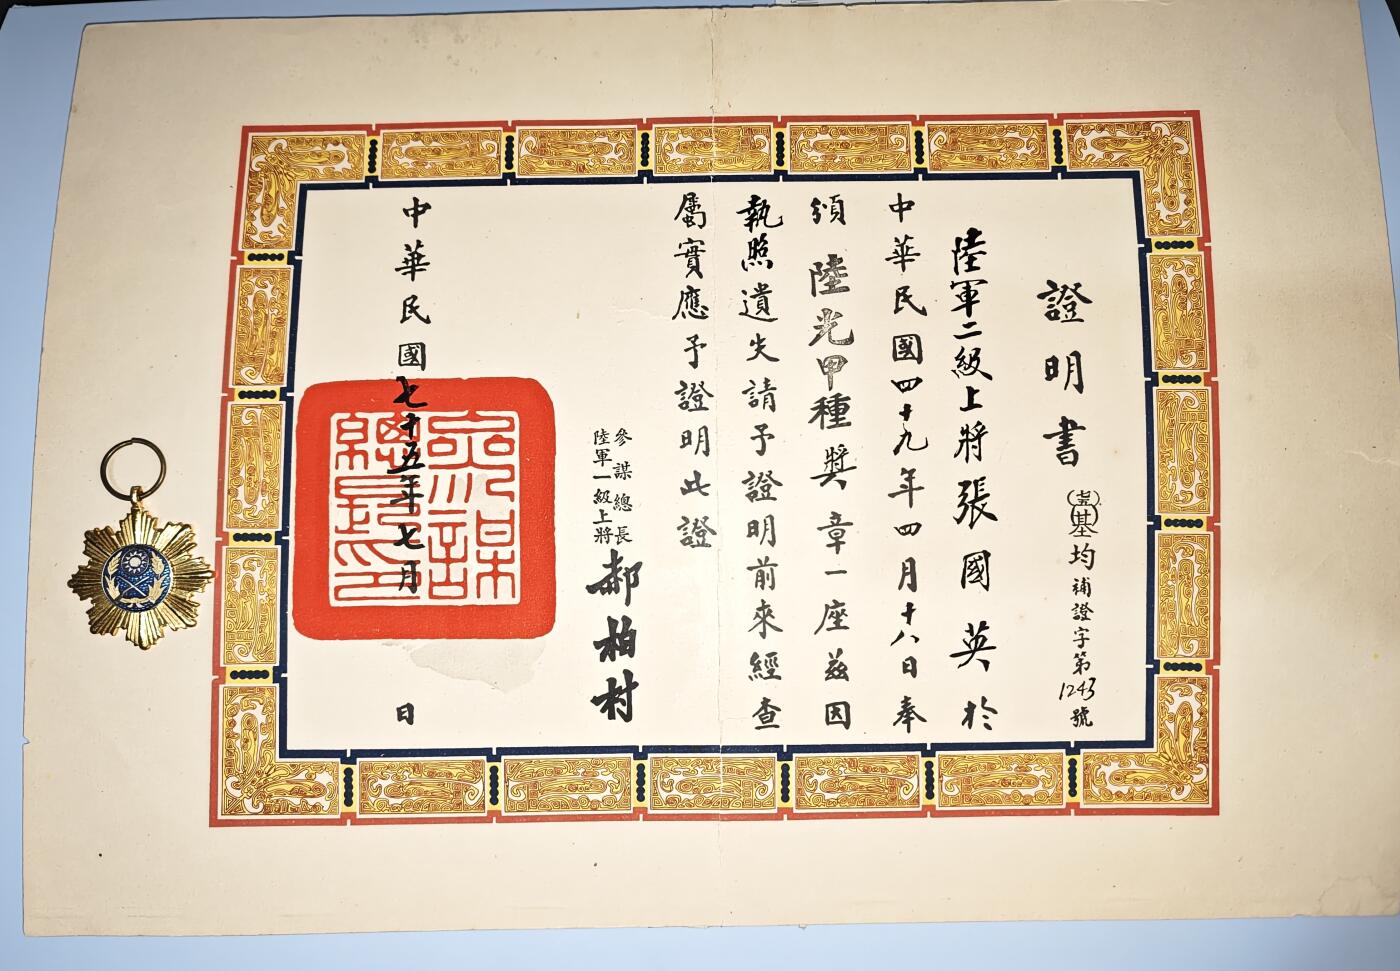 證明書
基均補證字第1243號
陸軍二級上將張國英於
中華民國四十九年四月十八日奉
頒陸光甲種獎章一座茲因
執照遺失請予證明前來經查
屬實應予證明此證
參謀總長
陸軍一級上將
郝柏村
參謀
總長印
中華民國七十五年七月 日